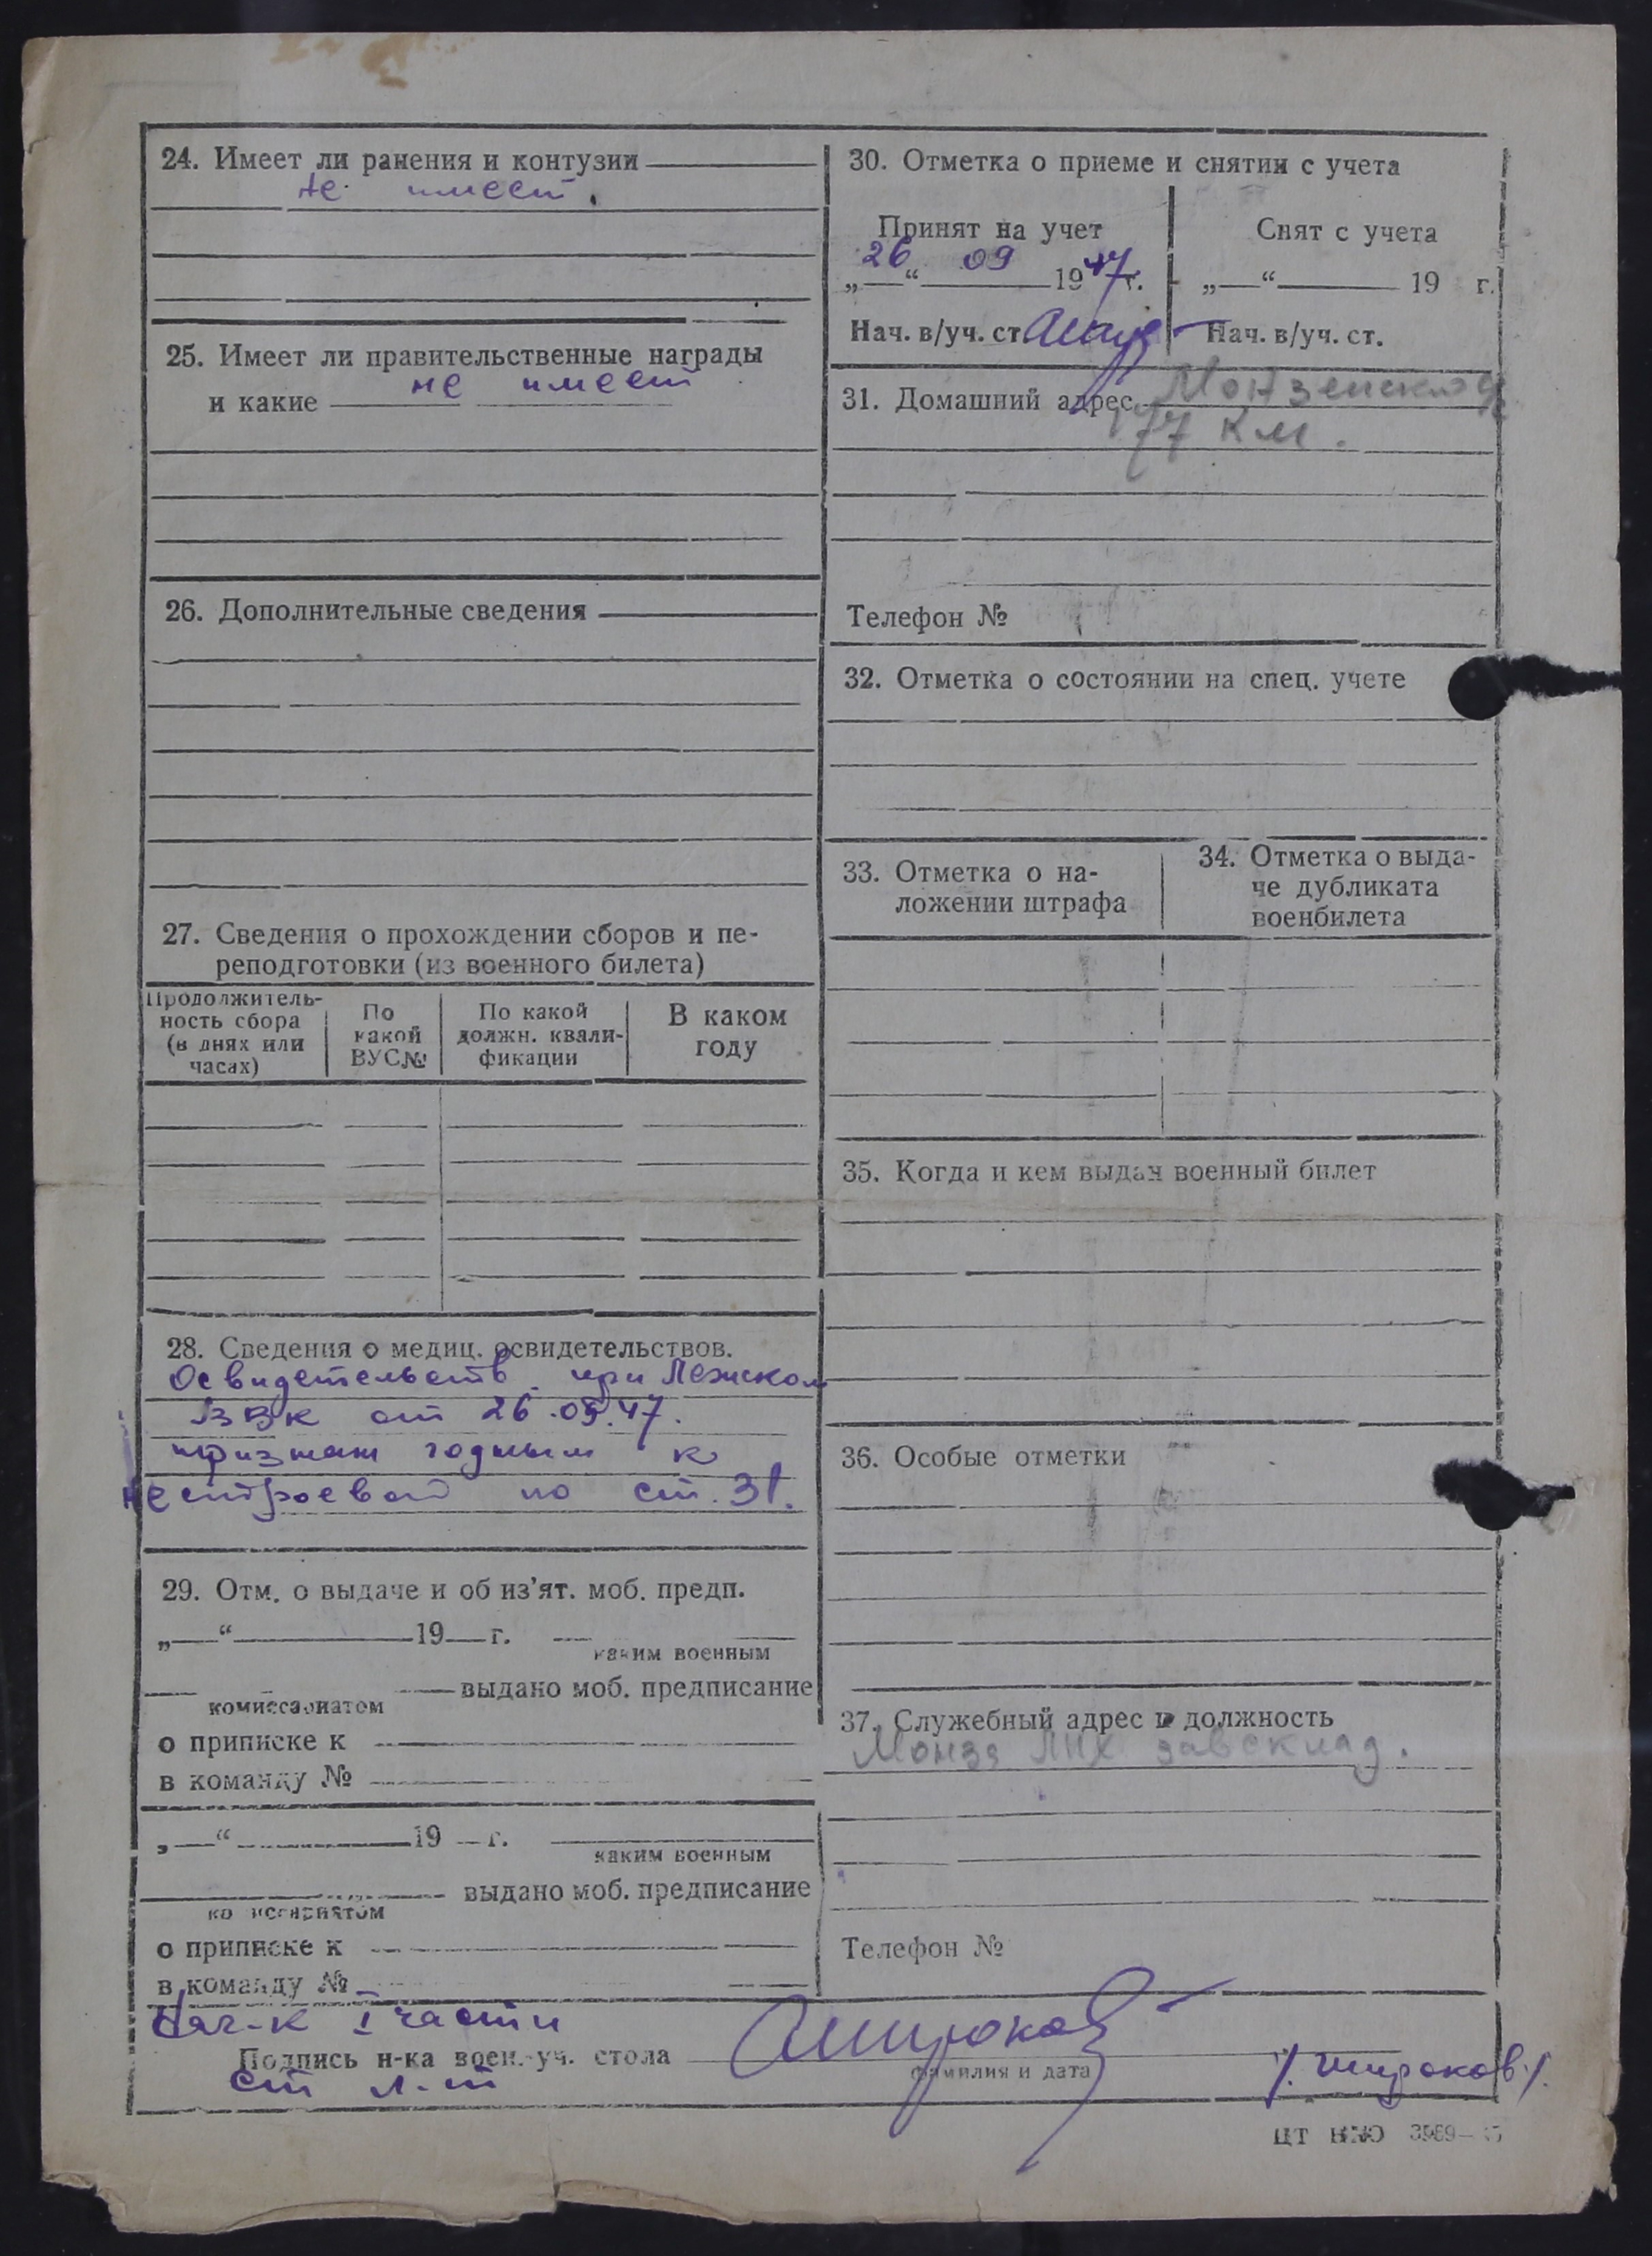 24. Имеет ли ранения и контузии
не имеет.
25. Имеет ли правительственные награды
и какие не имеет
26. Дополнительные сведения
27. Сведения о прохождении сборов и пе-
реподготовки (из военного билета)
Продолжитель-
ность сбора
(в днях или
часах)
По
какой
ВУС№
По какой
должн. квали-
фикации
В каком
году
28. Сведения о медиц. освидетельствов.
Освидетельств. при Лежском
ВВК от 26.09.47.
признан годным к
нестроевой по ст. 31.
29. Отм. о выдаче и об из'ят. моб. предп.
„—“ 19 г.
каким военным
комиссариатом выдано моб. предписание
о приписке к
в команду №
„—“ 19 г.
каким военным
комиссариатом выдано моб. предписание
о приписке к
в команду №
30. Отметка о приеме и снятии с учета
Принят на учет
„26“ 09 1947 г.
Нач. в/уч. ст.
Снят с учета
„—“ 19 г.
Нач. в/уч. ст.
31. Домашний адрес Монзенской
77 км.
Телефон №
32. Отметка о состоянии на спец. учете
33. Отметка о на-
ложении штрафа
34. Отметка о выда-
че дубликата
военбилета
35. Когда и кем выдан военный билет
36. Особые отметки
37. Служебный адрес и должность
Монза ЛПХ завсклад.
Телефон №
Нач-к I части
Подпись н-ка воен.-уч. стола Широков
фамилия и дата
ст л-т /. Широков./.
ЦТ ВМО